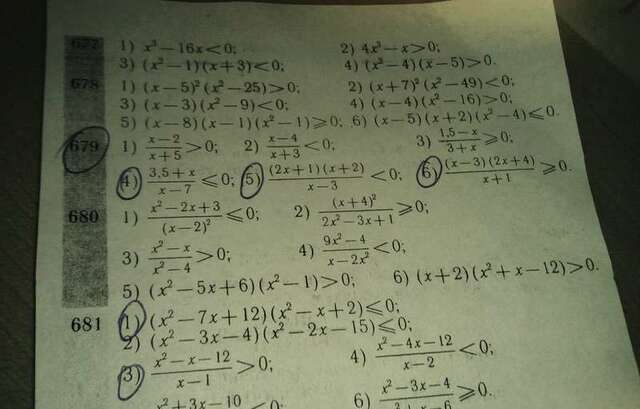 677 1) x³−16x<0; 2) 4x³−x>0;
3) (x²−1)(x+3)<0; 4) (x²−4)(x−5)>0.
678 1) (x−5)²(x²−25)>0; 2) (x+7)²(x²−49)<0;
3) (x−3)(x²−9)<0; 4) (x−4)(x²−16)>0;
5) (x−8)(x−1)(x²−1)⩾0; 6) (x−5)(x+2)(x²−4)⩽0.
679 1) (x−2)/(x+5)>0; 2) (x−4)/(x+3)<0; 3) (1,5−x)/(3+x)⩾0;
4) (3,5+x)/(x−7)⩽0; 5) ((2x+1)(x+2))/(x−3)<0; 6) ((x−3)(2x+4))/(x+1)⩾0.
680 1) (x²−2x+3)/(x−2)²⩽0; 2) (x+4)²/(2x²−3x+1)⩾0;
3) (x²−x)/(x²−4)>0; 4) (9x²−4)/(x−2x²)<0;
5) (x²−5x+6)(x²−1)>0; 6) (x+2)(x²+x−12)>0.
681 1) (x²−7x+12)(x²−x+2)⩽0;
2) (x²−3x−4)(x²−2x−15)⩽0;
3) (x²−x−12)/(x−1)>0; 4) (x²−4x−12)/(x−2)<0;
x²+3x−10 <0; 6) (x²−3x−4)/(x²+x−6)⩾0.